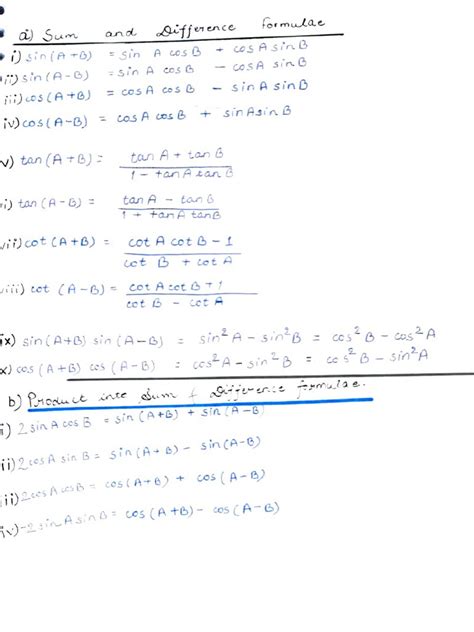 a) Sum and Difference formulae
i) sin (A+B) = sin A cos B + cos A sin B
ii) sin (A-B) = sin A cos B - cos A sin B
iii) cos (A+B) = cos A cos B - sin A sin B
iv) cos (A-B) = cos A cos B + sin A sin B
v) tan (A+B) = tan A + tan B / 1 - tan A tan B
i) tan (A-B) = tan A - tan B / 1 + tan A tan B
vii) cot (A+B) = cot A cot B - 1 / cot B + cot A
viii) cot (A-B) = cot A cot B + 1 / cot B - cot A
ix) sin (A+B) sin (A-B) = sin²A - sin²B = cos²B - cos²A
x) cos (A+B) cos (A-B) = cos²A - sin²B = cos²B - sin²A
b) Product into Sum & Difference formulae.
i) 2 sin A cos B = sin (A+B) + sin (A-B)
ii) 2 cos A sin B = sin (A+B) - sin (A-B)
iii) 2 cos A cos B = cos (A+B) + cos (A-B)
iv) -2 sin A sin B = cos (A+B) - cos (A-B)